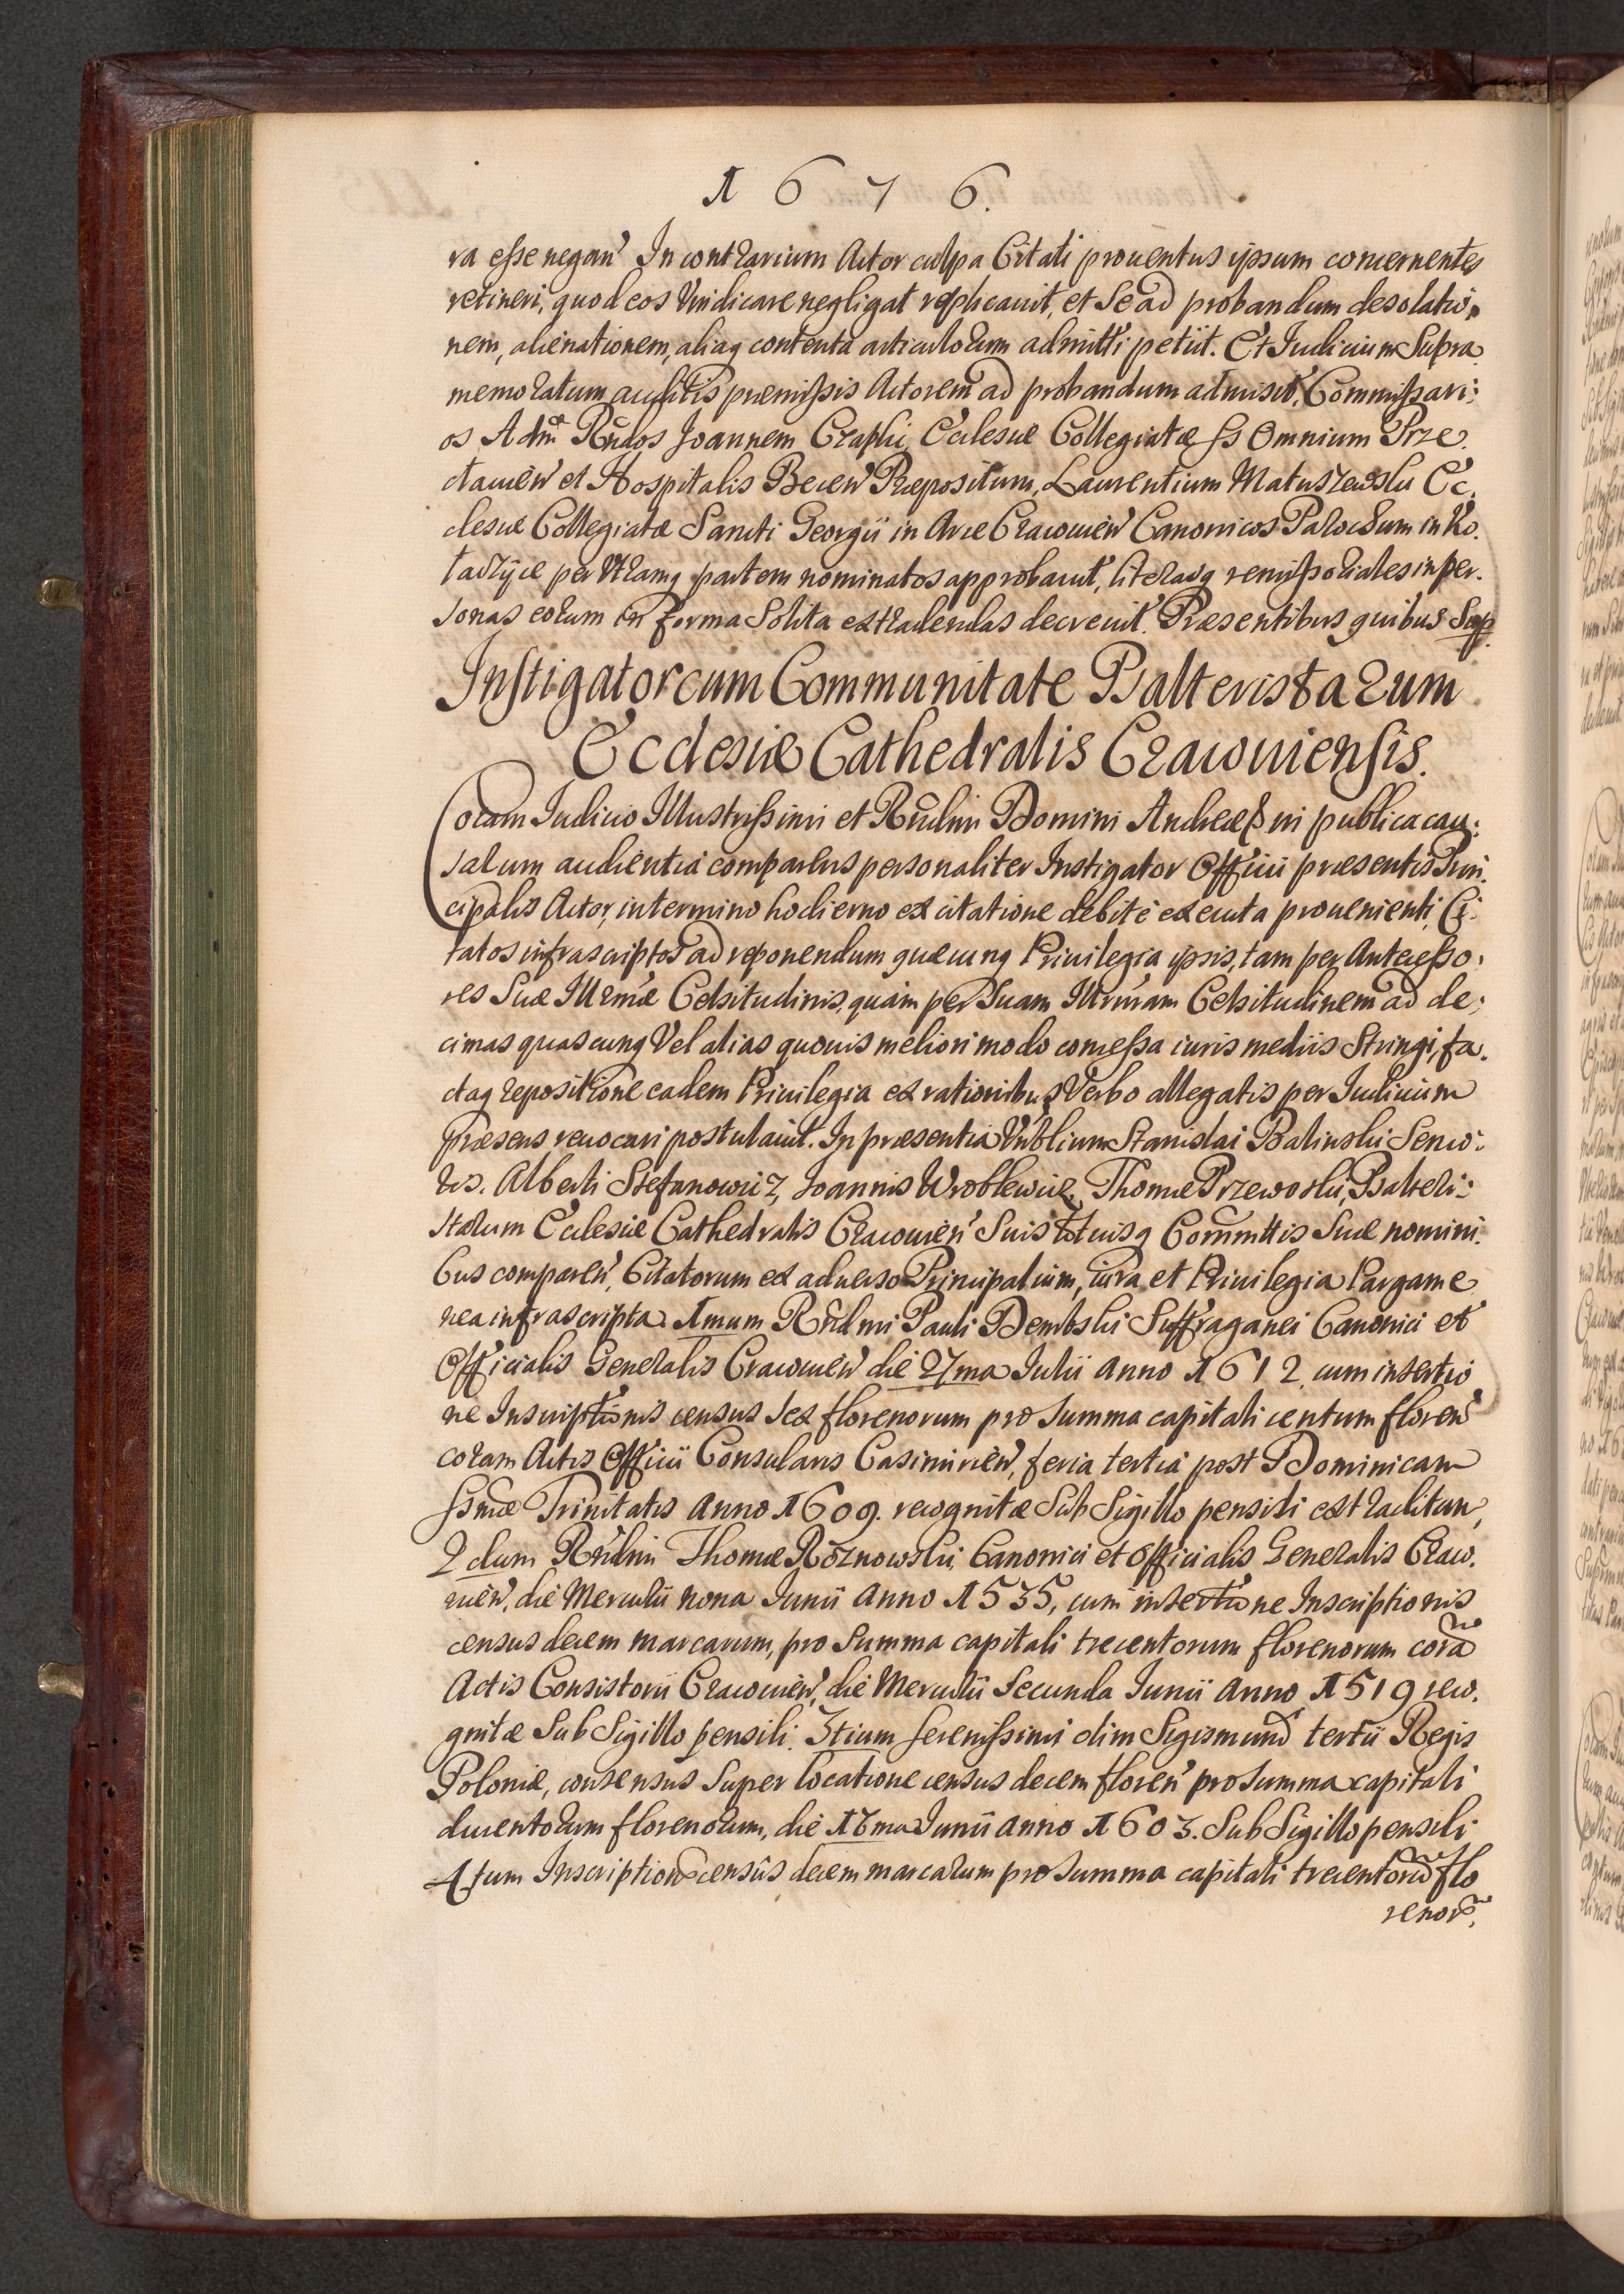 1 6 7 6.
ra esse negan̄ In contrarium Actor culpa Citati prouentus ipsum concernentes
retineri, quod eos Vindicare negligat replicauit, et Se ad probandum desolatio„
nem, alienationem, aliaq contenta articulorum admitti petiit. Et Iudicium Supra
memoratum auditis præmissis Actorem ad probandum admisit, Commissari:
os Admo Rndos Joannem Craplic Ecclesiæ Collegiatæ SS Omnium Prze
ctauien̄ et Hospitalis Becen̄ Præpositum, Laurentium Matuszewski Ec.
clesiæ Collegiatæ Sancti Georgii in Arce Cracouien̄ Canonicos Parochum in
per Vtramq partem nominatos approbauit, literasq remissoriales in per.
sonas eorum in forma Solita extradendas decreuit. Præsentibus quibus Sup.
Instigator cum Communitate Psalteristarum
Ecclesiæ Cathedralis Cracouiensis.
Coram Iudicio Illustrissimi et Rndmi Domini Andreæ ß in publica cau:
sarum audientia comparens personaliter Instigator Officii præsentis Prin.
cipalis Actor, in termino hodierno ex citatione debitè executa prouenienti, Ci:
tatos infrascriptos ad reponendum quæcunq Priuilegia ipsis, tam per Antecesso:
res Suæ Illrmæ Celsitudinis, quàm per Suam Illrmam Celsitudinem ad de:
cimas quascunq Vel alias quouis meliori modo concessa iuris mediis Stringi, fa.
ctaq repositione eadem Priuilegia ex rationibus Verbo allegatis per Iudicium
præsens reuocari postulauit. In præsentia Vnblium Stanislai Balinski Senio:
ris. Alberti Stefanowicz, Joannis Wroblewicz, Thomæ Przeworski, Psalteri:
starum Ecclesiæ Cathedralis Cracouien̄ Suis totiusq Committis Suæ nomini.
bus comparen̄, Citatorum ex aduerso Principalium, iura et Priuilegia Pargame
nea infrascripta. 1mum Rndmi Pauli Dembski Suffraganei Canonici et
Officialis Generalis Cracouien̄ die 27ma Iulii anno 1612. cum insertio
ne Inscriptionis census sex florenorum pro Summa capitali centum floren̄
coram Actis Officii Consularis Casimirien̄, feria tertia post Dominicam
SSmæ Trinitatis anno 1609. recognitæ Sub Sigillo pensili extraditum,
2dum Rndmi Thomæ Roznowski, Canonici et Officialis Generalis Craco.
uien̄, die Mercurii nona Iunii anno 1535, cum insertione Inscriptionis
census decem marcarum, pro Summa capitali trecentorum florenorum corā
Actis Consistorii Cracouien̄, die Mercurii Secunda Iunii anno 1519 reco.
gnitæ Sub Sigillo pensili. 3tium Serenissimi olim Sigismund̄ tertii Regis
Poloniæ, consensus Super locatione census decem floren̄ pro Summa capitali
ducentorum florenorum, die Iunii anno 1603. Sub Sigillo pensili
4tum Inscriptione censûs decem marcarum pro Summa capitali trecentorū flo
renorū,